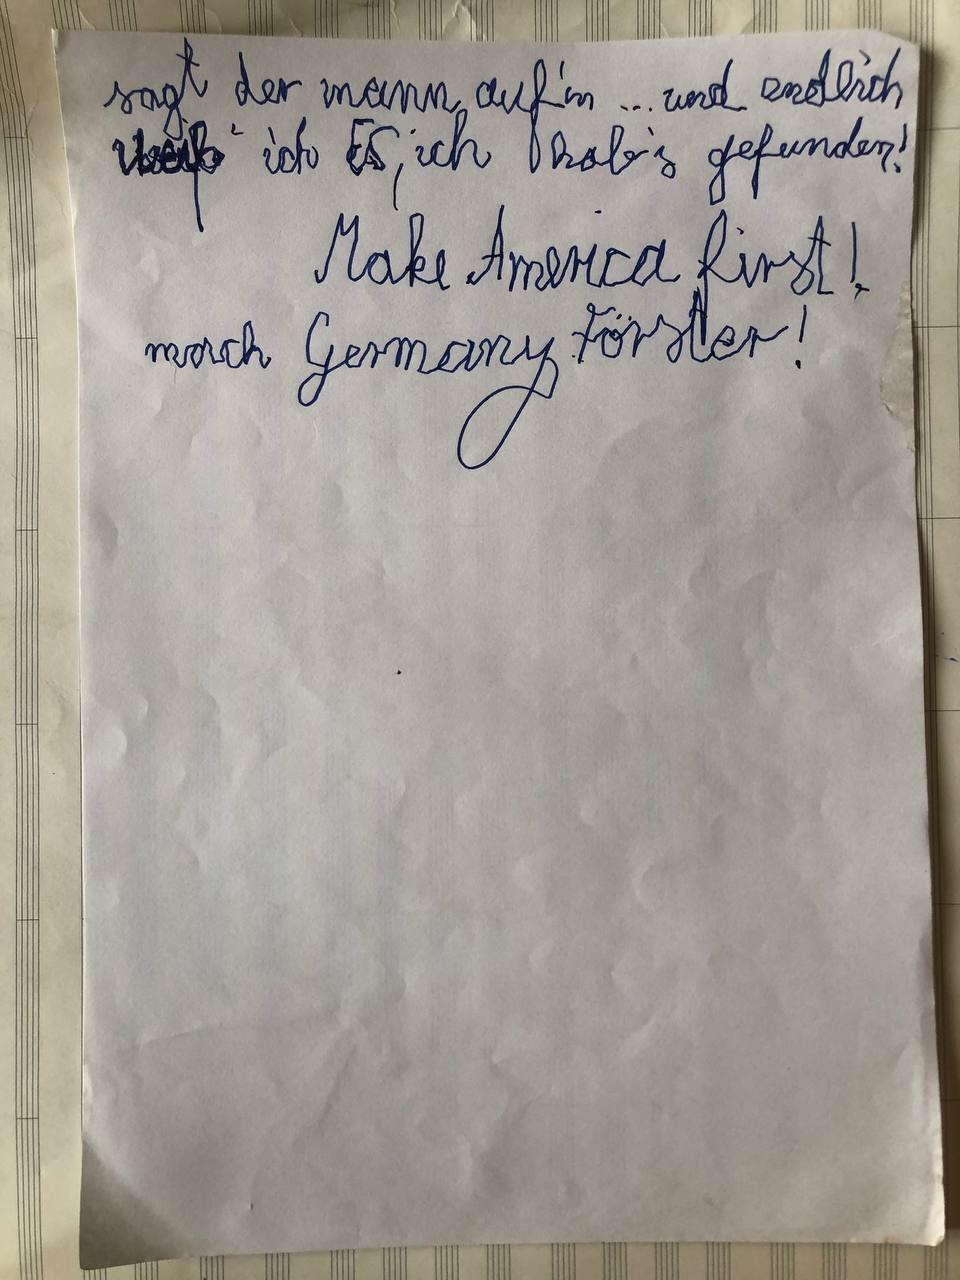 sagt der mann, auf'm ... und endlich
weiß' ich ES, ich hab's gefunden!
Make America first!
mach Germany Förster!